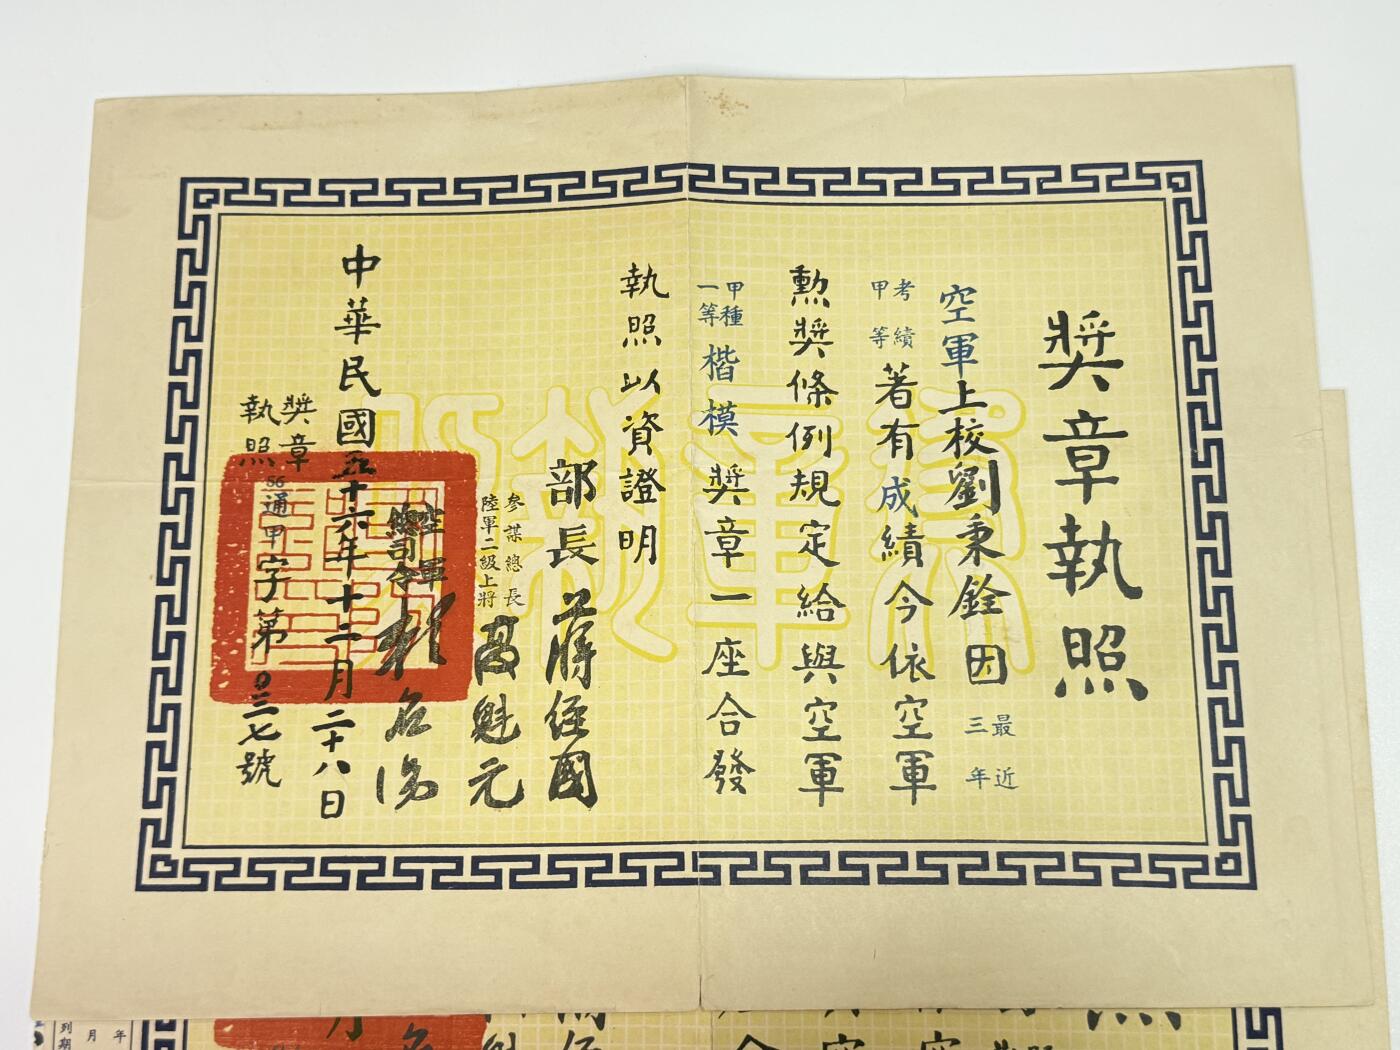 獎章執照
空軍上校劉秉銓因最近三年
考績甲等著有成績今依空軍
勲獎條例規定給與空軍
甲種一等楷模獎章一座合發
執照以資證明
部長蔣經國
參謀總長
陸軍二級上將
高魁元
空軍
總司令
中華民國五十六年十二月二十八日
獎章
執照
56通甲字第0三七號
年
月
列
期